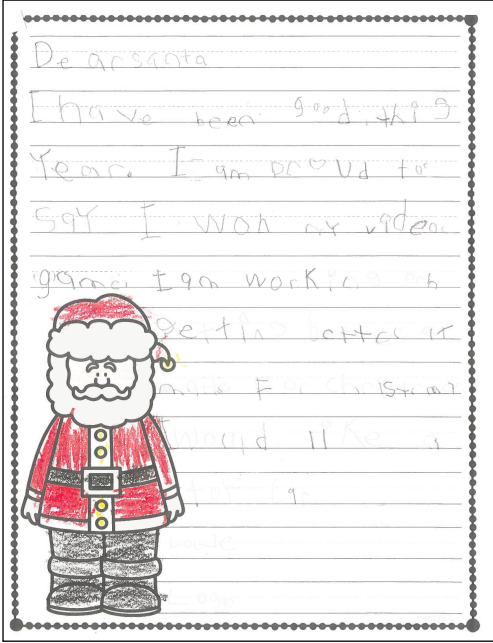 Dear santa
I have been good this
Year. I am proud to
say I won my video
game. I am working on
getting better at
For christmas
I would like a